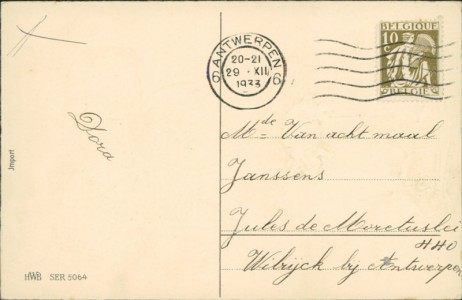 BELGIQUE
10 c
BELGIË
6 ANTWERPEN 6
20-21
29 · XII
1933
Dora
Import
Mde Van achtmaal
Janssens
Jules de Moretuslei
440
Wilrijck by Antwerpen
HWB SER 5064